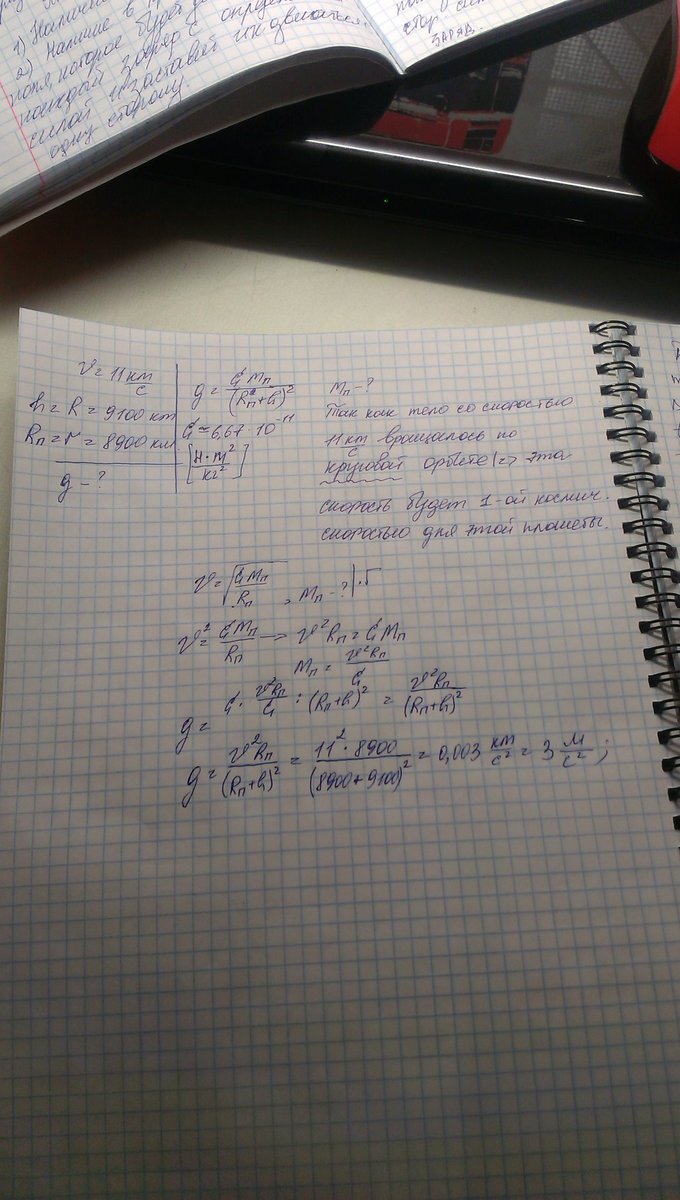 1) Наличие
2) Наличие в
поля, которое будет
каждый заряд с опреде
силой и заставит их двигаться
одну сторону.
заряд.
v = 11 км/с
h = R = 9100 км
Rп = r = 8900 км
g - ?
g = G Mп/(Rп + h)²
G ≈ 6,67 · 10⁻¹¹
[Н · м²/кг²]
Mп - ?
Так как тело со скоростью
11 км/с вращалось по
круговой орбите => эта
скорость будет 1-ой космич.
скоростью для этой планеты.
v = √(G Mп/Rп), Mп - ? | · Г
v² = G Mп/Rп → v² Rп = G Mп
Mп = v² Rп/G
g = G · v² Rп/G : (Rп + h)² = v² Rп/(Rп + h)²
g = v² Rп/(Rп + h)² = 11² · 8900/(8900 + 9100)² = 0,003 км/с² = 3 м/с² ;